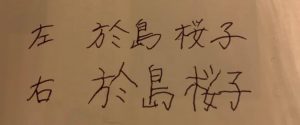 左 於島 桜子
右 於島 桜子